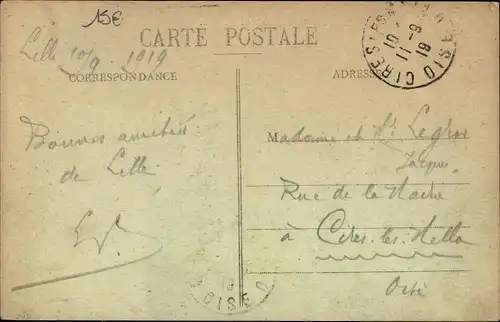 15€
CARTE POSTALE
Lille 10/9 1919
CORRESPONDANCE
ADRESSE
CIRES
OISE
10
11-9
19
Madame et Mr Legros
Jacques
Bonnes amitiés
de Lille
Rue de la
à Cires-les-Mello
Oise
OISE